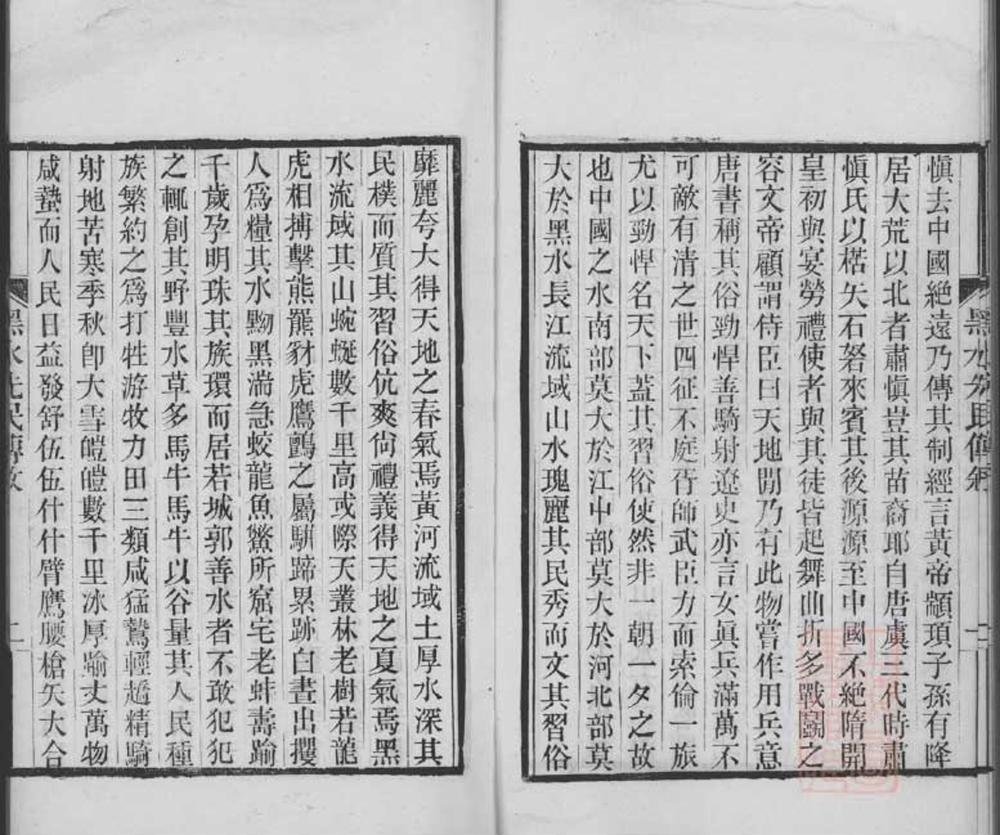 愼去中國絕遠乃傳其制經言黃帝顓頊子孫有降
居大荒以北者肅愼豈其苗裔耶自唐虞三代時肅
愼氏以楛矢石砮來賓其後源源至中國不絕隋開
皇初與宴勞禮使者與其徒皆起舞曲折多戰鬭之
容文帝顧謂侍臣曰天地閒乃有此物嘗作用兵意
唐書稱其俗勁悍善騎射遼史亦言女眞兵滿萬不
可敵有清之世四征不庭胥師武臣力而索倫一旅
尤以勁悍名天下蓋其習俗使然非一朝一夕之故
也中國之水南部莫大於江中部莫大於河北部莫
大於黑水長江流域山水瑰麗其民秀而文其習俗
靡麗夸大得天地之春氣焉黃河流域土厚水深其
民樸而質其習俗伉爽尙禮義得天地之夏氣焉黑
水流域其山蜿蜒數千里高或際天叢林老樹若龍
虎相搏擊熊羆豺虎鷹鸇之屬駢蹄累跡白晝出攫
人爲糧其水黝黑湍急蛟龍魚鱉所窟宅老蚌壽踰
千歲孕明珠其族環而居若城郭善水者不敢犯犯
之輒創其野豐水草多馬牛馬牛以谷量其人民種
族繁約之爲打牲游牧力田三類咸猛鷙輕趫精騎
射地苦寒季秋卽大雪皚皚數千里冰厚踰丈萬物
咸蟄而人民日益發舒伍伍什什臂鷹腰槍矢大合
黑水先民傳敘
二